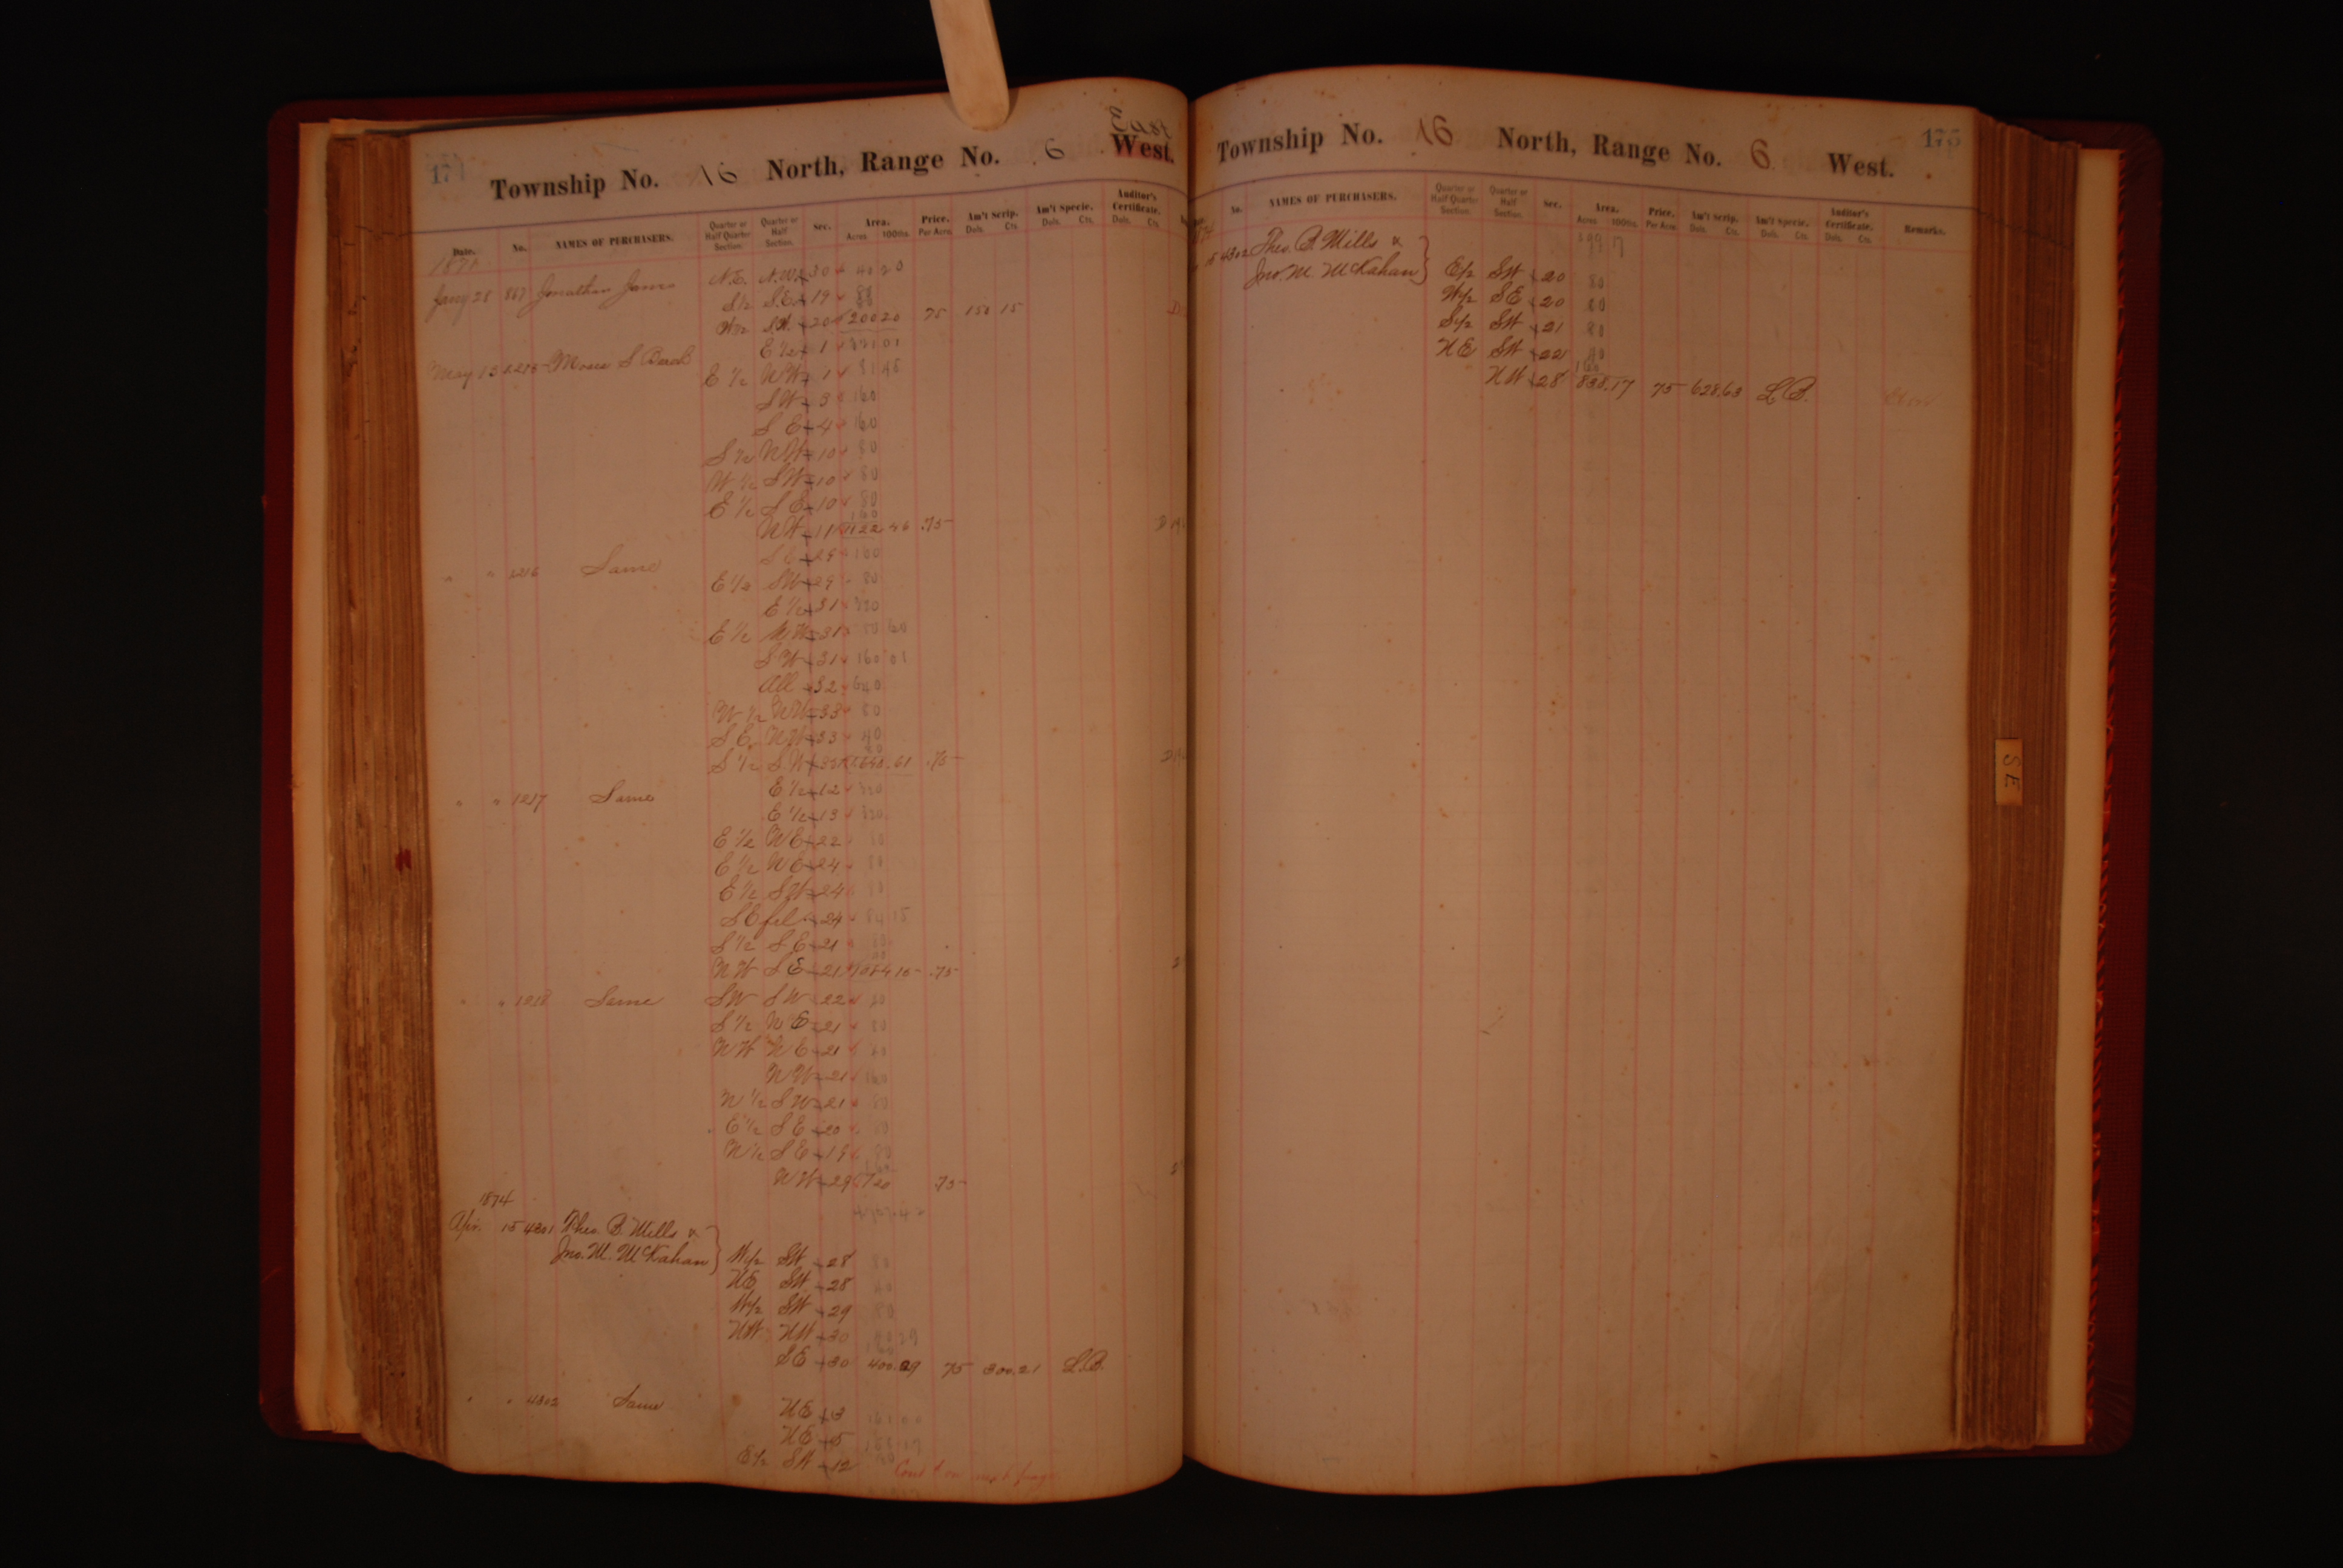 East
Township No. 16 North, Range No. 6 West.
Date. No. NAMES OF PURCHASERS. Quarter or Half Quarter Section. Quarter or Half Section. Sec. Area. Acres 100ths. Price. Per Acre. Am't Scrip. Dols. Cts. Am't Specie. Dols. Cts. Auditor's Certificate. Dols. Cts.
Jany 28 867 Jonathan James N.E. N.W. 30 40 20
S½ S.E. 19 80
W½ S.W. 20 200 20 75 150 15
E½ 1 321 01
May 13 Moses S. E½ NW 1 81 45
SW 3 160
SE 4 160
S½ NW 10 80
W½ SW 10 80
E½ SE 10 80
NW 11 1122.46 .75
" " 1216 Same SE 29 160
E½ SW 29 80
E½ 31 320
E½ NW 31 80 60
SW 31 160 01
All 32 640
W½ NW 33 80
SE NW 33 40
S½ SW 33 .61 .75
" " 1217 Same E½ 12 320
E½ 13 320
E½ NE 22 80
E½ NE 24 80
E½ SW 24 80
SE fcl 24 84 15
S½ SE 21 80
NW SE 21 1084 15 .75
" " 1218 Same SW SW 22 40
S½ NE 21 80
NW NE 21 40
NW 21 160
N½ SW 21 80
E½ SE 20 80
N½ SE 19 80
NW 29 720 .75
1874
Apr. 15 4301 Theo. B. Mills &
Jno. M. McKahan W½ SW 28 80
NE SW 28 40
W½ SW 29 80
NW NW 30 40 29
SE 30 400.29 75 300.21 L.B.
" " 4302 Same NE 3
NE 5
E½ SW 12 80 Cont'd on next page
Township No. 16 North, Range No. 6 West. 175
No. NAMES OF PURCHASERS. Quarter or Half Quarter Section. Quarter or Half Section. Sec. Area. Acres 100ths. Price. Per Acre. Am't Scrip. Dols. Cts. Am't Specie. Dols. Cts. Auditor's Certificate. Dols. Cts. Remarks.
15 4302 Theo. B. Mills &
Jno. M. McKahan E½ SW 20 80
W½ SE 20 80
S½ SW 21 80
NE SW 22 40
NW 28 838.17 75 628.63 L.B.
SE